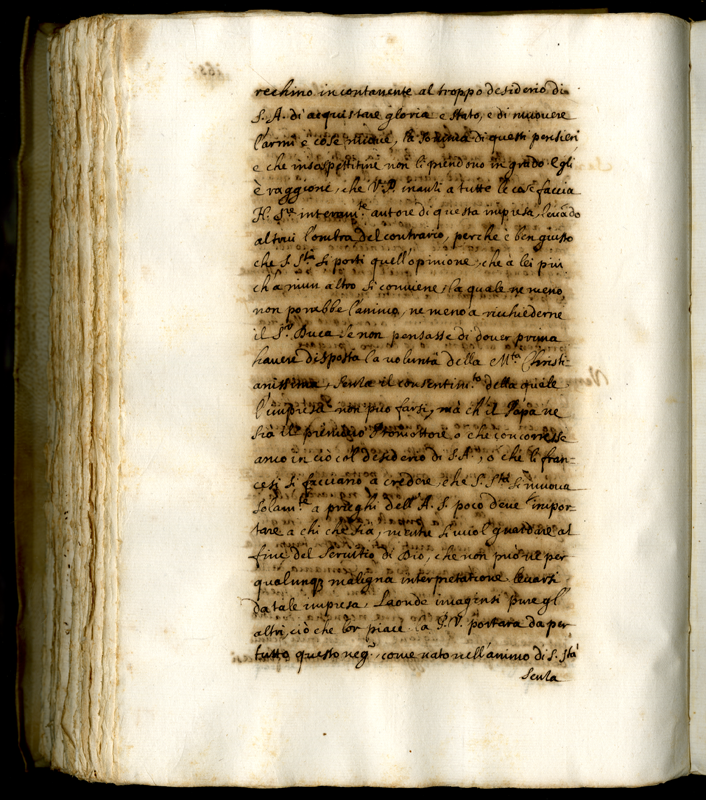 rechino incontanente al troppo desiderio di
S. A. di acquistare gloria e stato, e di muovere
l'armi e cose nuove, la somma di questi pensieri
e che insospettitine non li prendono in grado. Egli
è raggione, che V. P. inanti a tutte le cose faccia
N. Sre interamte autore di questa impresa, levando
altrui l'ombra del contrario, perche è ben giusto
che S. Sta si porti quell'opinione, che a lei più
ch'a niun altro si conviene, la quale ne meno
non porrebbe l'animo, ne meno a richiederne
il Sr Duca se non pensasse di dover prima
havere disposta la voluntà della Mta Christi-
anissima, senza il consentimto della quale
l'impresa non puo farsi, mà ch'il Papa ne
sia il primiero Promottore o che concorresse
anco in ciò col desiderio di S. A., o che li fran-
cesi si facciano a credere, che S. Sta si muova
solamte a prieghi dell'A. S. poco deve impor-
tare a chi che sia, mentre si vuol guardare al
fine del Servitio di Dio, che non può ne per
qualunq; maligna interpretatione levarsi
da tale impresa. Laonde imaginsi pure gl'
altri ciò che lor piace la P. V. portarà da per
tutto questo nego, come nato nell'animo di S. Sta
senza